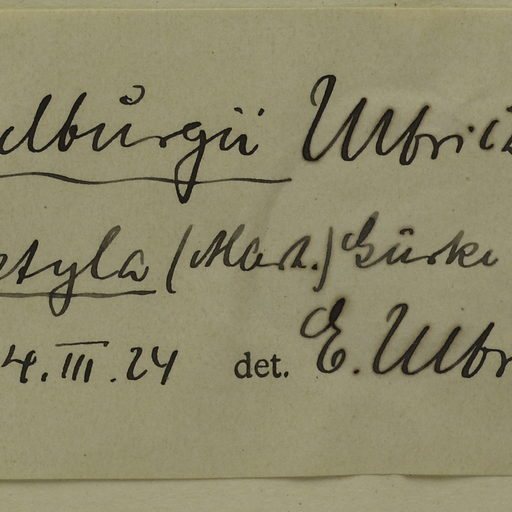 elburgii Ulbrich
styla (Mart.) Gürke
4.III.24 det. E. Ulbr